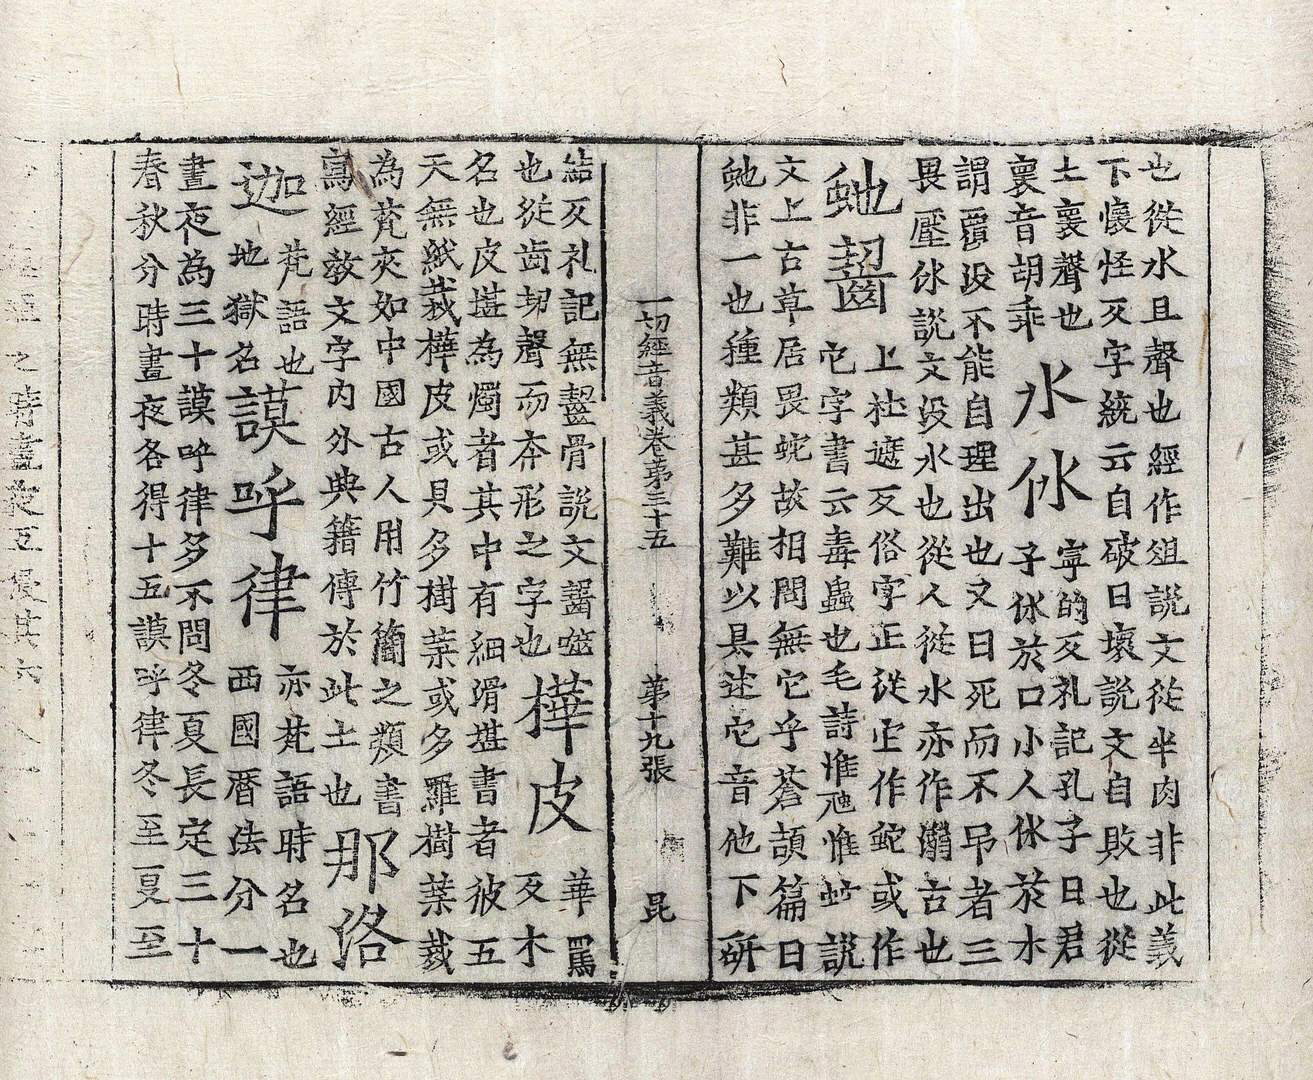 也從水且聲也經作俎說文從半肉非此義
下懷怪反字統云自破曰壞說文自敗也從
土褱聲也
褱音胡乖
水㲻
寧的反礼記孔子曰君
子㲻於口小人㲻於水
謂覆没不能自理出也文曰死而不吊者三
畏壓㲻說文没水也從人從水亦作溺古也
虵齧
上社遮反俗字正從它作鉈或作
它字書云毒蟲也毛詩惟虺惟虵說
文上古草居畏蛇故相問無它乎蒼頡篇曰
虵非一也種類甚多難以具述它音他下研
一切經音義卷第三十五 第十九張 昆
結反礼記無齧骨說文齧噬
也從齒㓞聲而夲形之字也
樺皮
華罵
反木
名也皮堪為燭者其中有細滑堪書者彼五
天無紙裁樺皮或貝多樹葉或多羅樹葉裁
為梵夾如中國古人用竹簡之類書
寫經教文字内外典籍傳於此土也
那洛
迦
梵語也
地獄名
謨呼律
亦梵語時名也
西國曆法分一
晝夜為三十謨呼律多不問冬夏長定三十
春秋分時晝夜各得十五謨呼律冬至夏至